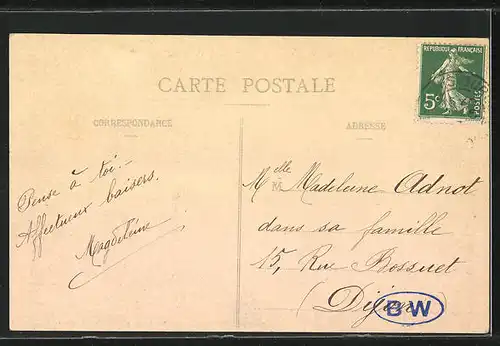 CARTE POSTALE
CORRESPONDANCE
ADRESSE
REPUBLIQUE FRANÇAISE
5c
POSTES
Pense à toi.—
Affectueux baisers.
Magdeleine
Melle Madeleine Adnot
dans sa famille
15, Rue Bossuet
(Dijon)
BW